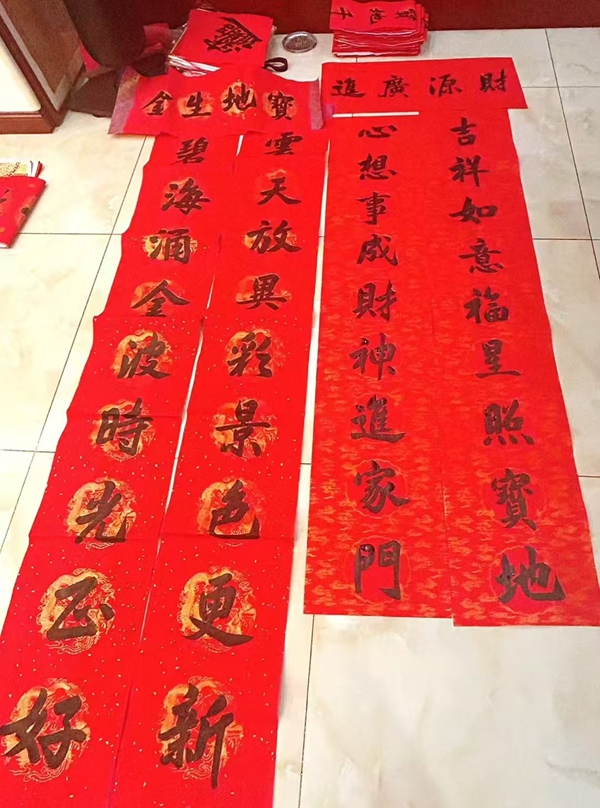 財源廣進
吉祥如意福星照寶地
心想事成財神進家門
寶地生金
雲天放異彩景色更新
碧海酒金波時光正好